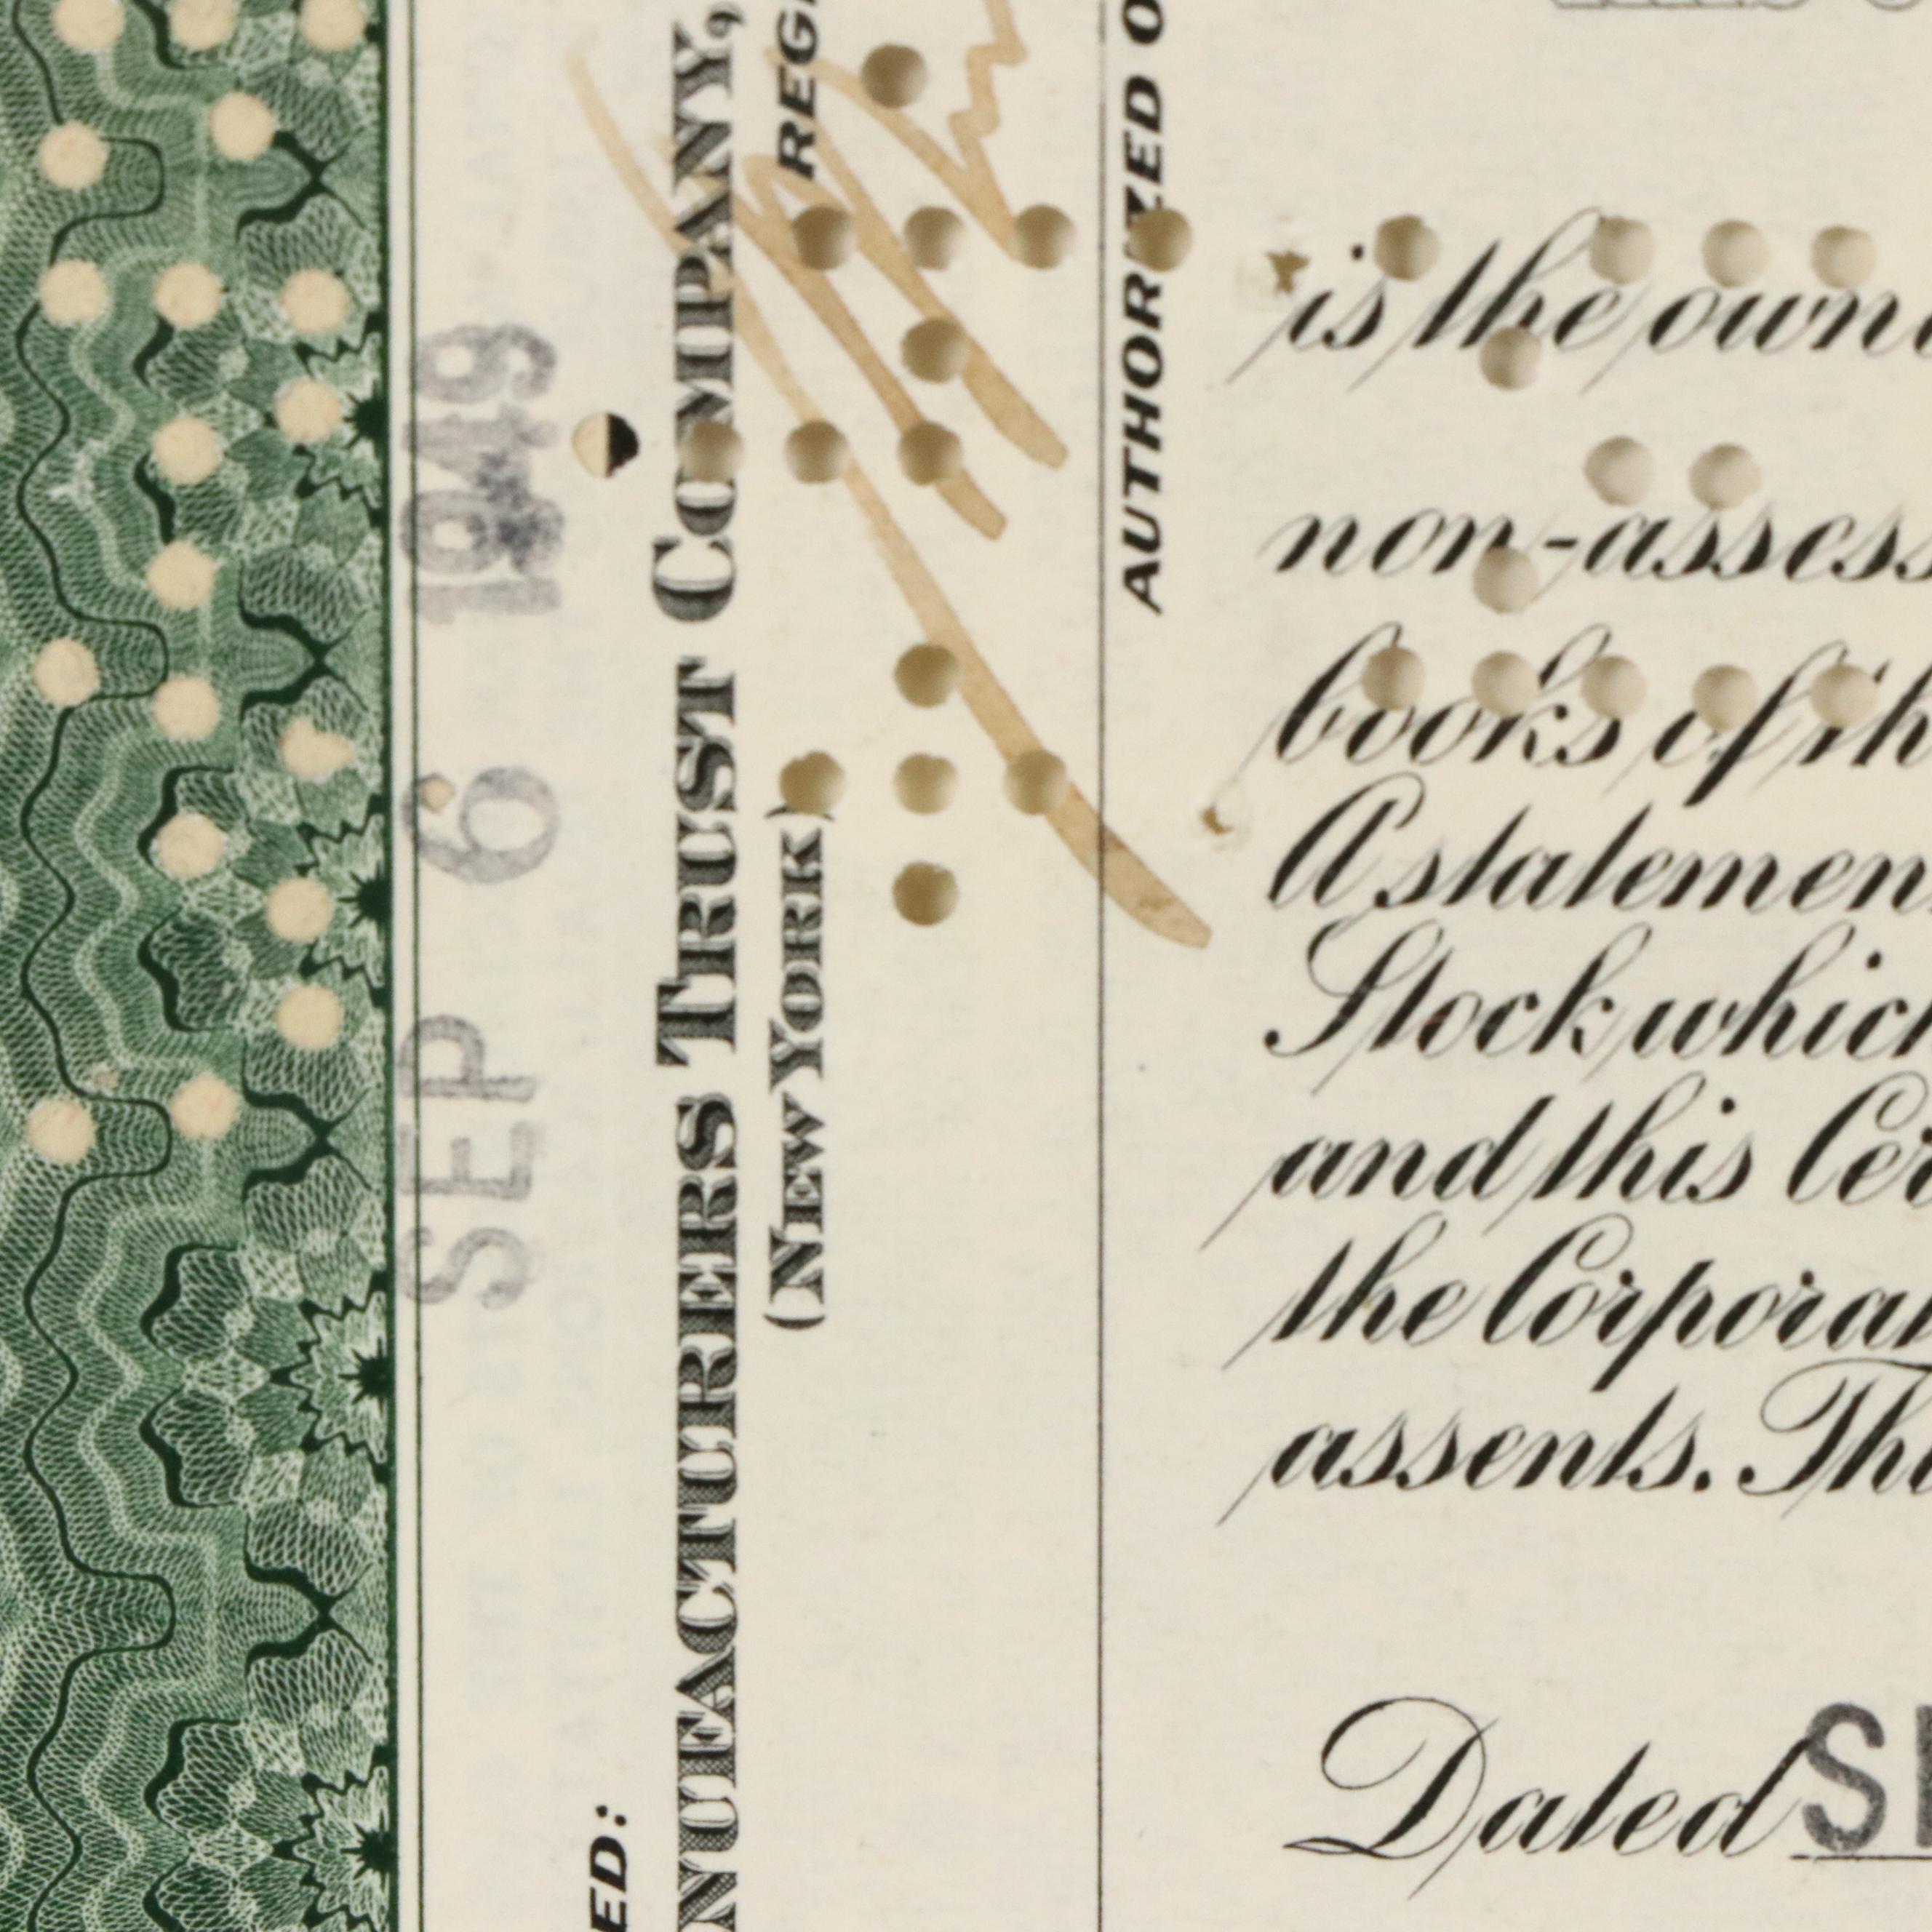 SEP 6 1949
ED:
NUFACTURERS TRUST COMPANY,
(NEW YORK)
REG
AUTHORIZED O
is the own
non-assess
books of th
A statemen
Stock which
and this Cer
the Corporat
assents. Thi
Dated SE